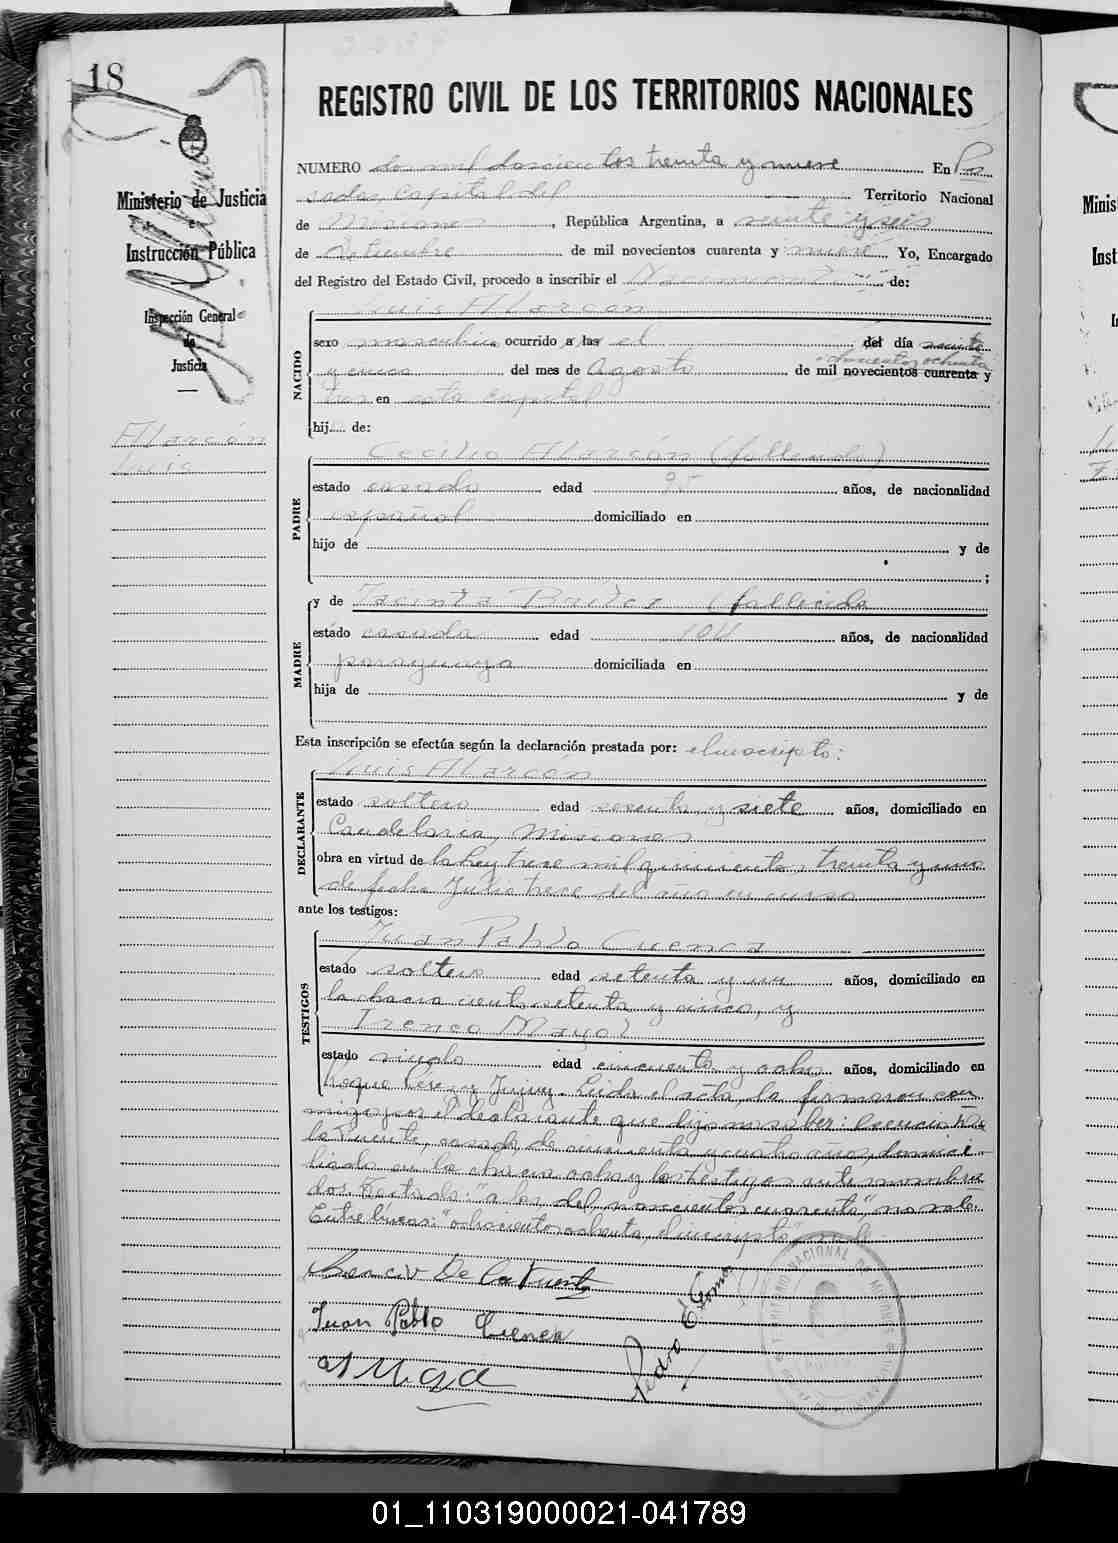 18
REGISTRO CIVIL DE LOS TERRITORIOS NACIONALES
Ministerio de Justicia
Instrucción Pública
Inspección General
de
Justicia
Alarcón
Luis
NUMERO dos mil doscientos treinta y nueve En Po
sadas, Capital del Territorio Nacional
de Misiones, República Argentina, a veinte y seis
de Setiembre de mil novecientos cuarenta y nueve Yo, Encargado
del Registro del Estado Civil, procedo a inscribir el Nacimiento de:
Luis Alarcón
NACIDO
sexo masculino ocurrido a las el del día veinte
y cinco del mes de Agosto de mil novecientos cuarenta y
ochocientos ochenta
tres en esta Capital
hij.... de:
PADRE
Cecilio Alarcón (fallecido)
estado casado edad 35 años, de nacionalidad
español domiciliado en
hijo de y de
;
MADRE
y de Jacinta Britez (fallecida
estado casada edad años, de nacionalidad
paraguaya domiciliada en
hija de y de
Esta inscripción se efectúa según la declaración prestada por: el inscripto:
DECLARANTE
Luis Alarcón
estado soltero edad sesenta y siete años, domiciliado en
Candelaria, Misiones
obra en virtud de la ley trece mil quinientos, treinta y uno
de fecha Julio trece del año en curso
ante los testigos:
TESTIGOS
Juan Pablo Cuenca
estado soltero edad setenta y un años, domiciliado en
la chacra ciento setenta y cinco, y
Ireneo Mayol
estado viudo edad cincuenta y ocho años, domiciliado en
Roque Perez y Jujuy. Leida el acta, la firmaron con
migo, por el declarante que dijo no saber: Lcencio De
la Fuente, casado, de cincuenta y cuatro años, domici
liado en la chacra ocho y los testigos antes nombra
dos. Testado: "a las, del, novecientos cuarenta", no vale.
Entre lineas: "ochocientos ochenta, el inscripto", vale.
De la Fuente
Juan Pablo Cuenca
Pedro E. Gomez
TERRITORIO NACIONAL DE MISIONES
01_110319000021-041789
Minis
Inst